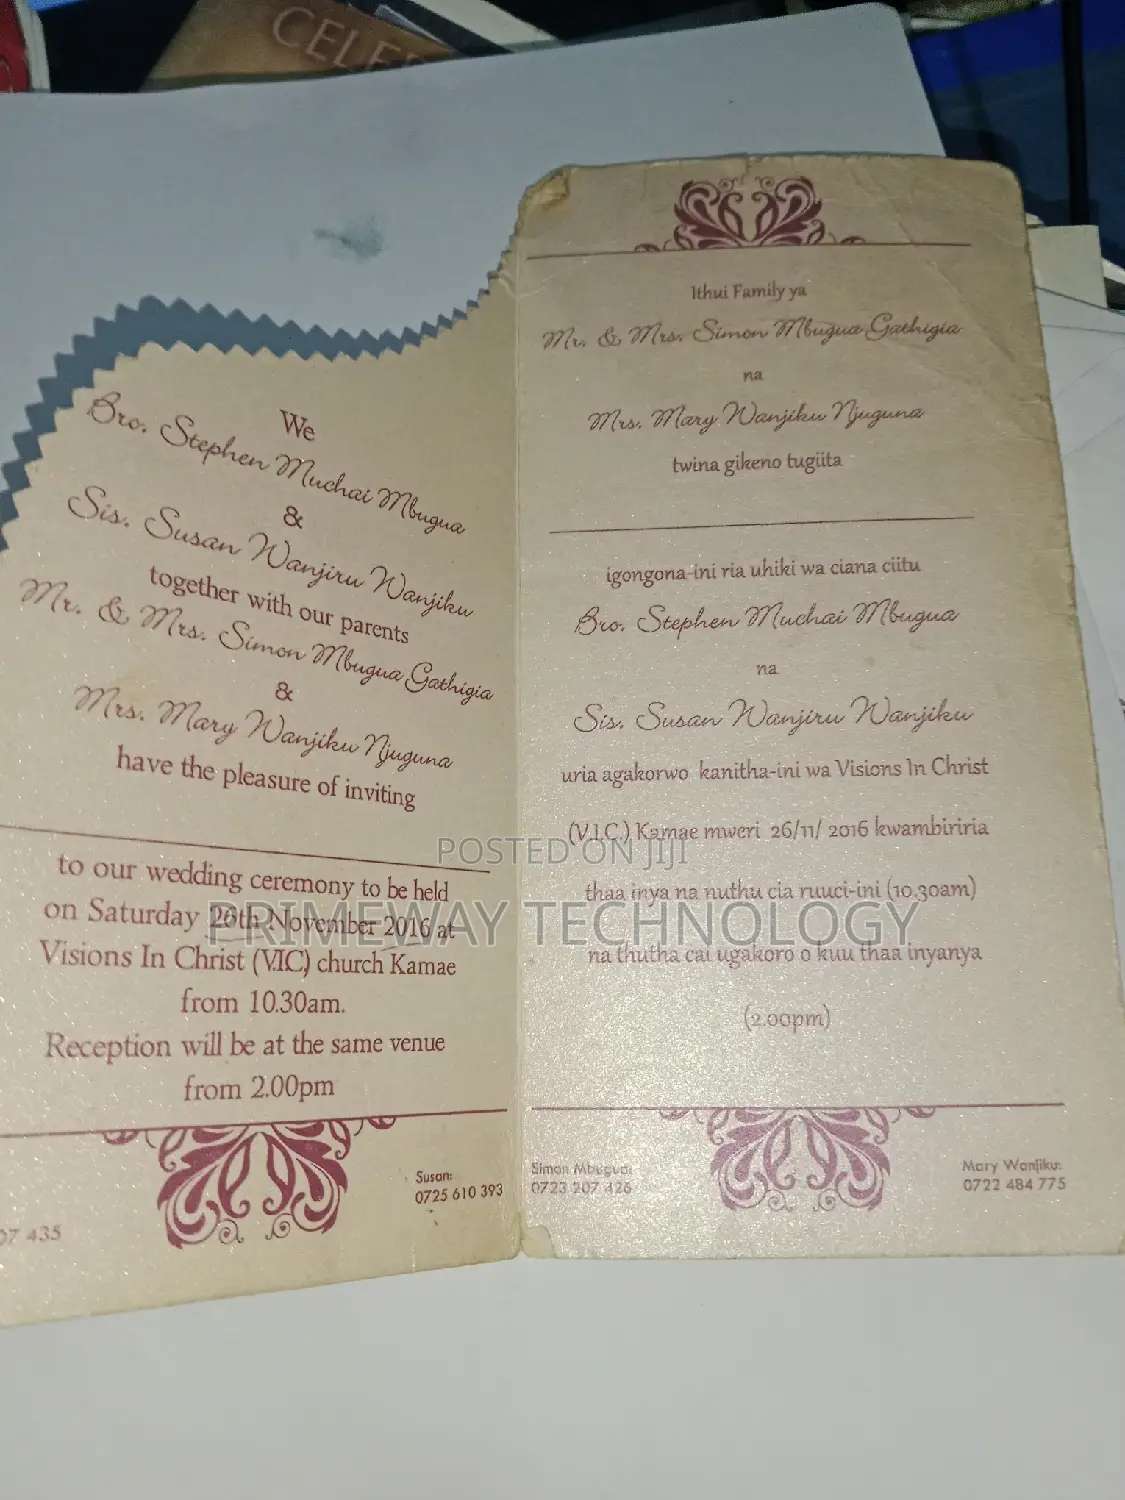 CELE
We
Bro. Stephen Muchai Mbugua
&
Sis. Susan Wanjiru Wanjiku
together with our parents
Mr. & Mrs. Simon Mbugua Gathigia
&
Mrs. Mary Wanjiku Njuguna
have the pleasure of inviting
to our wedding ceremony to be held
on Saturday 26th November 2016 at
Visions In Christ (V.I.C.) church Kamae
from 10.30am.
Reception will be at the same venue
from 2.00pm
07 435
Susan:
0725 610 393
Ithui Family ya
Mr. & Mrs. Simon Mbugua Gathigia
na
Mrs. Mary Wanjiku Njuguna
twina gikeno tugiita
igongona-ini ria uhiki wa ciana ciitu
Bro. Stephen Muchai Mbugua
na
Sis. Susan Wanjiru Wanjiku
uria agakorwo kanitha-ini wa Visions In Christ
(V.I.C.) Kamae mweri 26/11/ 2016 kwambiriria
thaa inya na nuthu cia ruuci-ini (10.30am)
na thutha cai ugakoro o kuu thaa inyanya
(2.00pm)
Simon Mbugua:
0723 207 426
Mary Wanjiku:
0722 484 775
POSTED ON JIJI
PRIMEWAY TECHNOLOGY